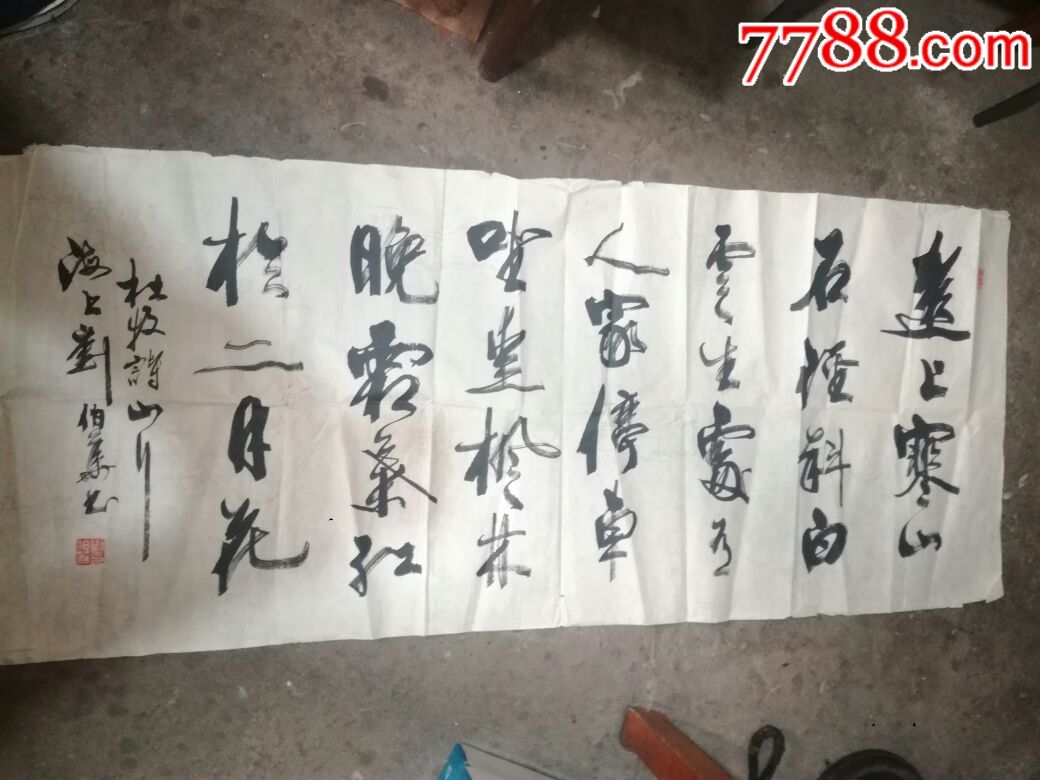 7788.com
遠上寒山
石徑斜白
雲生處有
人家停車
坐愛楓林
晚霜葉紅
於二月花
杜牧詩山行
海上劉伯书